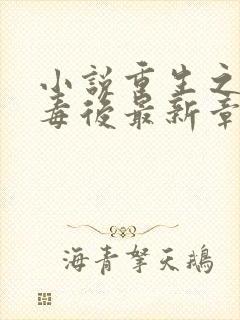 小说重生之
毒後最新章
海青拏天鹅